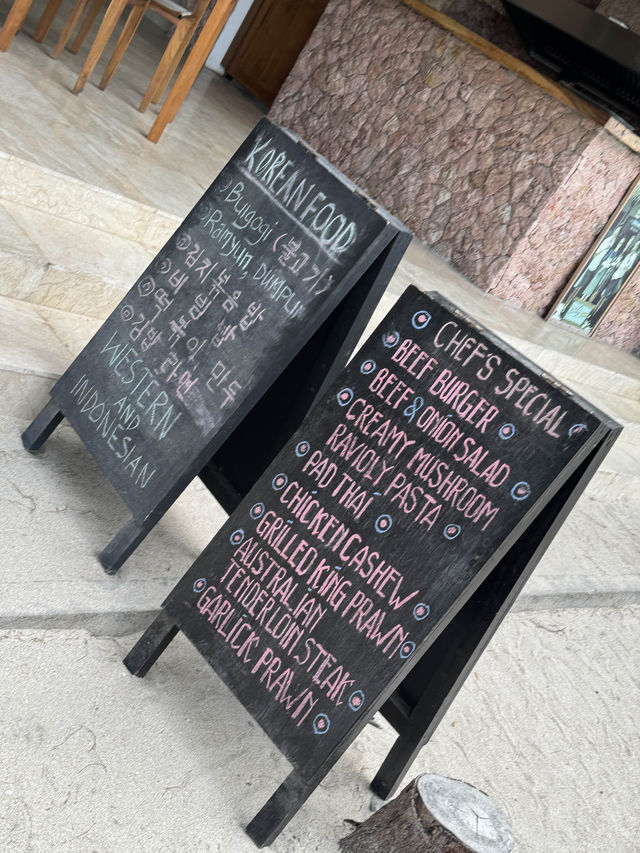 KOREAN FOOD
Bulgogi (불고기)
Ramyun, DUMPLI
김치볶음밥
비빔밥
떡볶이 만두
김밥 라면
WESTERN
AND
INDONESIAN
CHEF'S SPECIAL
BEEF BURGER
BEEF & ONION SALAD
CREAMY MUSHROOM
RAVIOLY PASTA
PAD THAI
CHICKEN CASHEW
GRILLED KING PRAWN
AUSTRALIAN
TENDERLOIN STEAK
GARLICK PRAWN